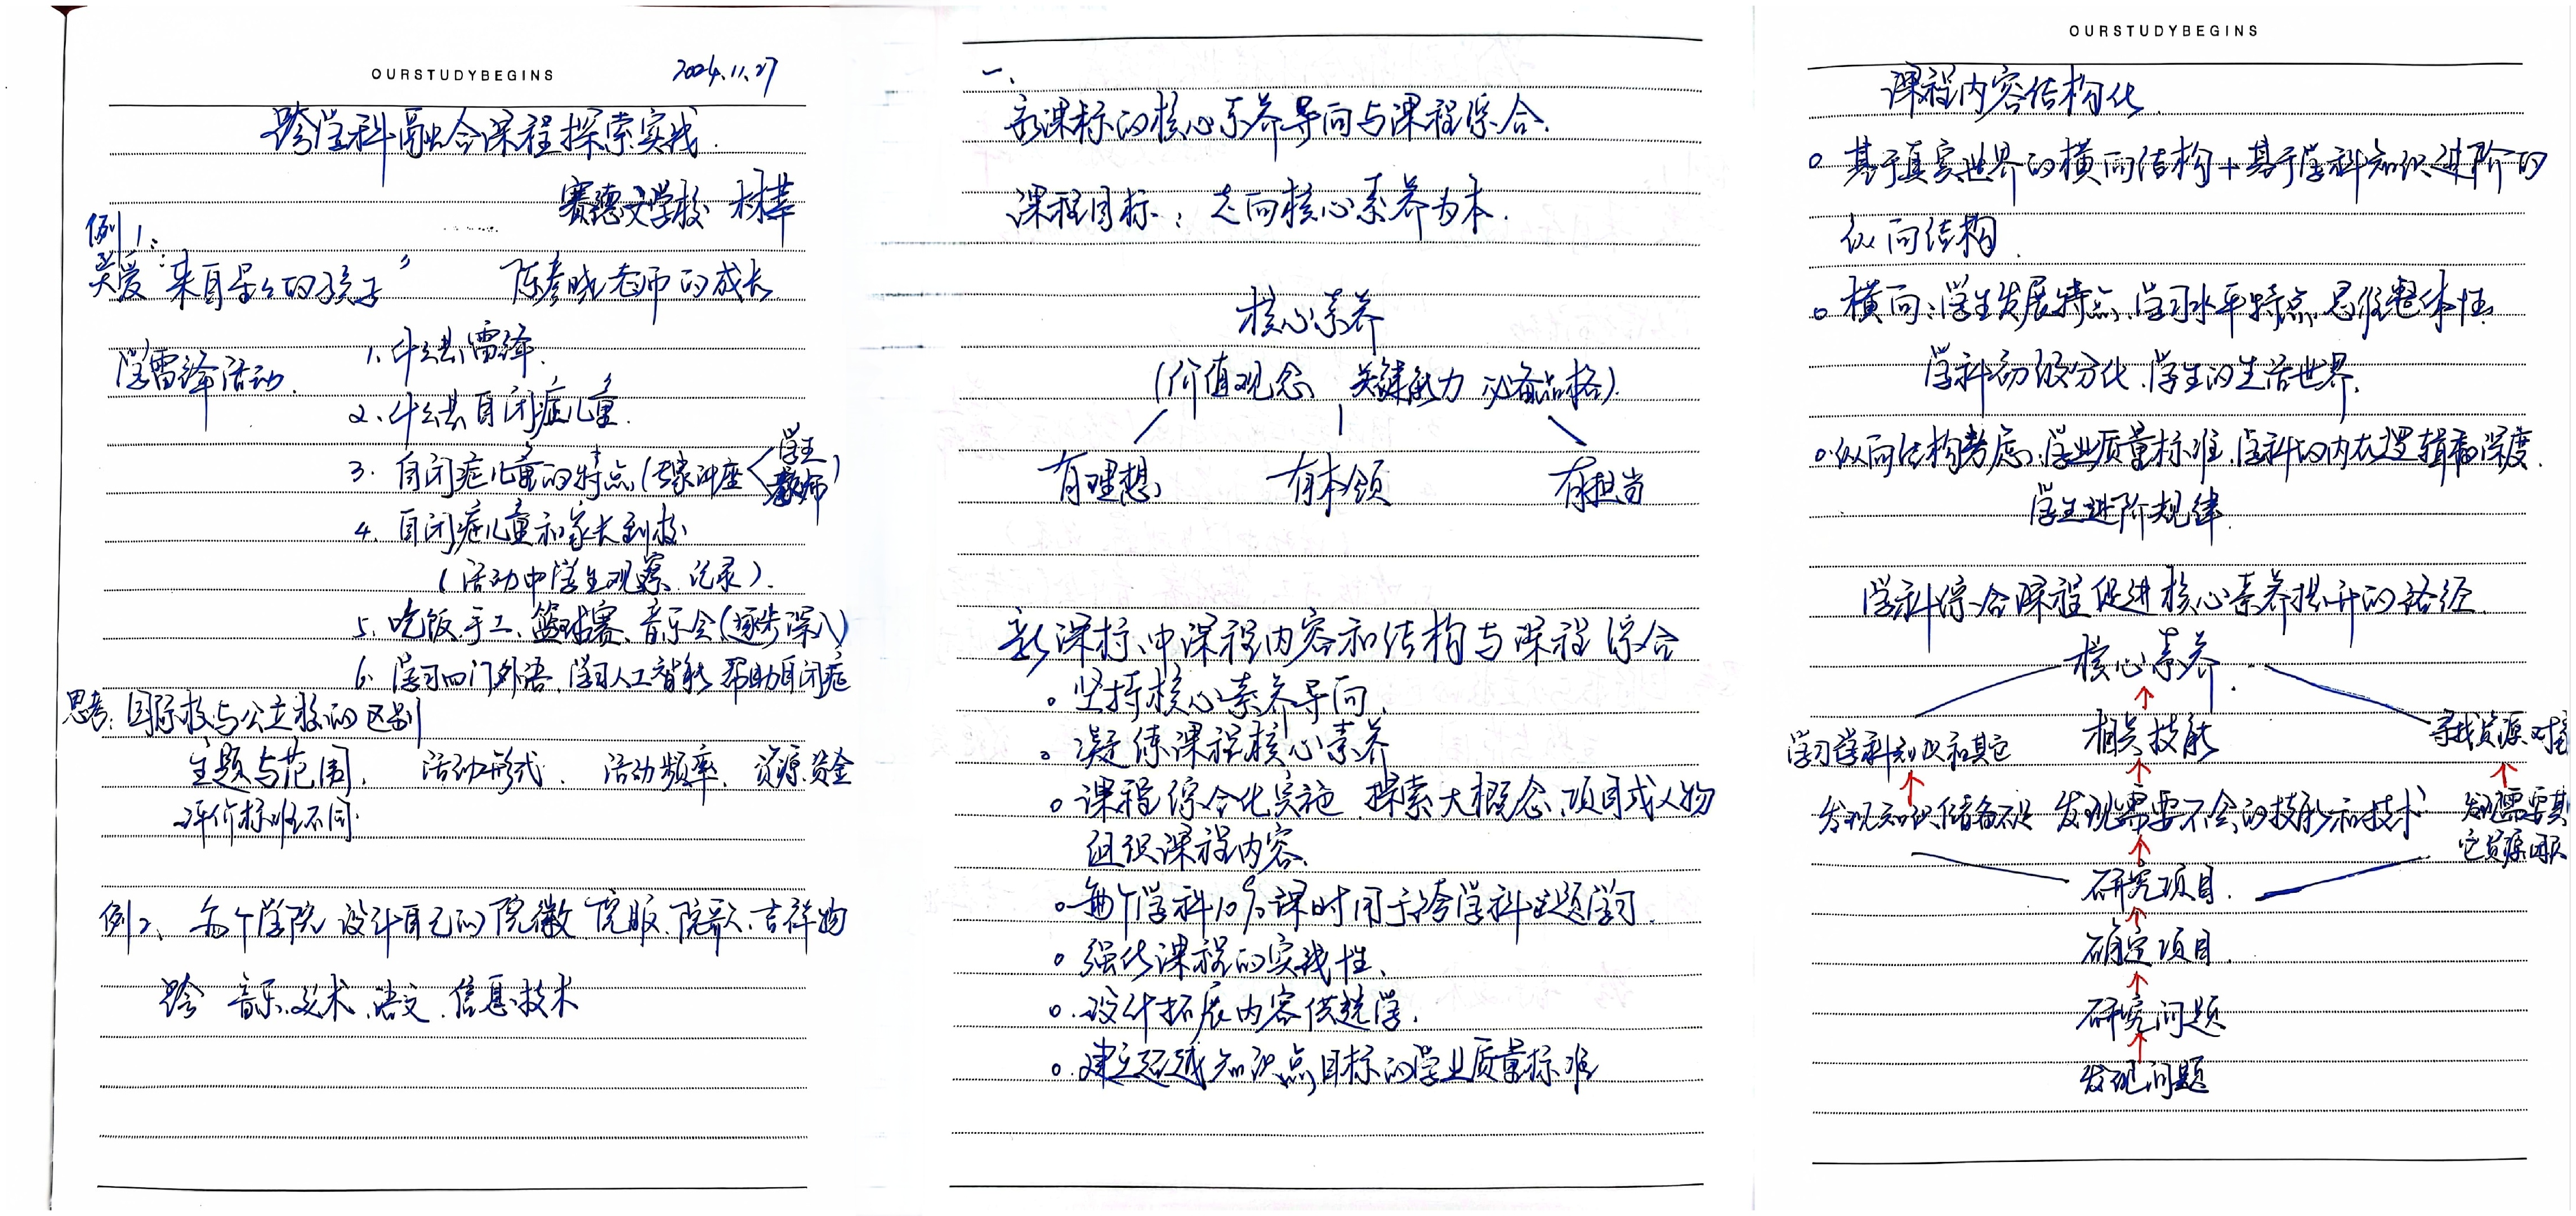 OURSTUDYBEGINS
2024.11.27
跨学科融合课程探索实践.
赛德文学校
例1:
关爱"来自星星的孩子" 陈彦晓老师的成长
学雷锋活动.
1、什么是雷锋.
2、什么是自闭症儿童.
3. 自闭症儿童的特点(专家讲座<学生 教师)
4. 自闭症儿童和家长到校
(活动中学生观察、记录).
5. 吃饭、手工、篮球赛、音乐会(逐步深入)
6. 学习四门外语、学习人工智能 帮助自闭症
思考: 国际校与公立校的区别
主题与范围, 活动形式. 活动频率. 资源.资金
评价标准不同.
例2、每个学院设计自己的院徽、院服、院歌、吉祥物
跨 音乐、美术、语文、信息技术
一、
新课标的核心素养导向与课程综合.
课程目标: 走向核心素养为本.
核心素养
(价值观念、关键能力 必备品格).
有理想 有本领 有担当
新课标中课程内容和结构与课程综合
。坚持核心素养导向.
。凝练课程核心素养
。课程综合化实施、探索大概念、项目或人物
组织课程内容.
。每个学科10%课时用于跨学科主题学习.
。强化课程的实践性、
。设计拓展内容供选学.
。建立超越知识点目标的学业质量标准
OURSTUDYBEGINS
课程内容结构化.
。基于真实世界的横向结构+基于学科知识进阶的
纵向结构.
。横向:学生发展特点、学习水平特点、思维整体性.
学科初级分化、学生的生活世界.
。纵向结构考虑:学业质量标准、学科的内在逻辑和深度.
学生进阶规律.
学科综合课程促进核心素养提升的路径.
核心素养.
学习学科知识和其它 相关技能 寻找资源
发现知识储备不足 发现需要不会的技能和技术 发现需要其它资源
研究项目.
确定项目.
研究问题
发现问题